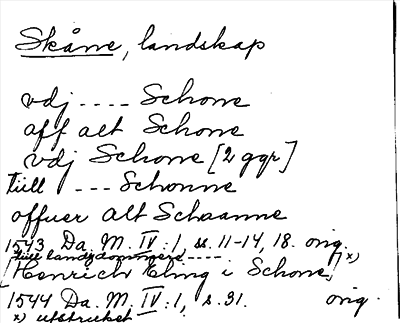 Skåne, landskap
vdj ---- Schone
aff alt Schone
vdj Schone [2 ggr]
till --- Schonne
offuer alt Schaanne
1543 Da. M. IV:1, ss. 11-14, 18. orig.
till landzdommere ----
[Henrich Elmg i Schone,] x)
1544 Da. M. IV:1, s. 31. orig.
x) utstruket